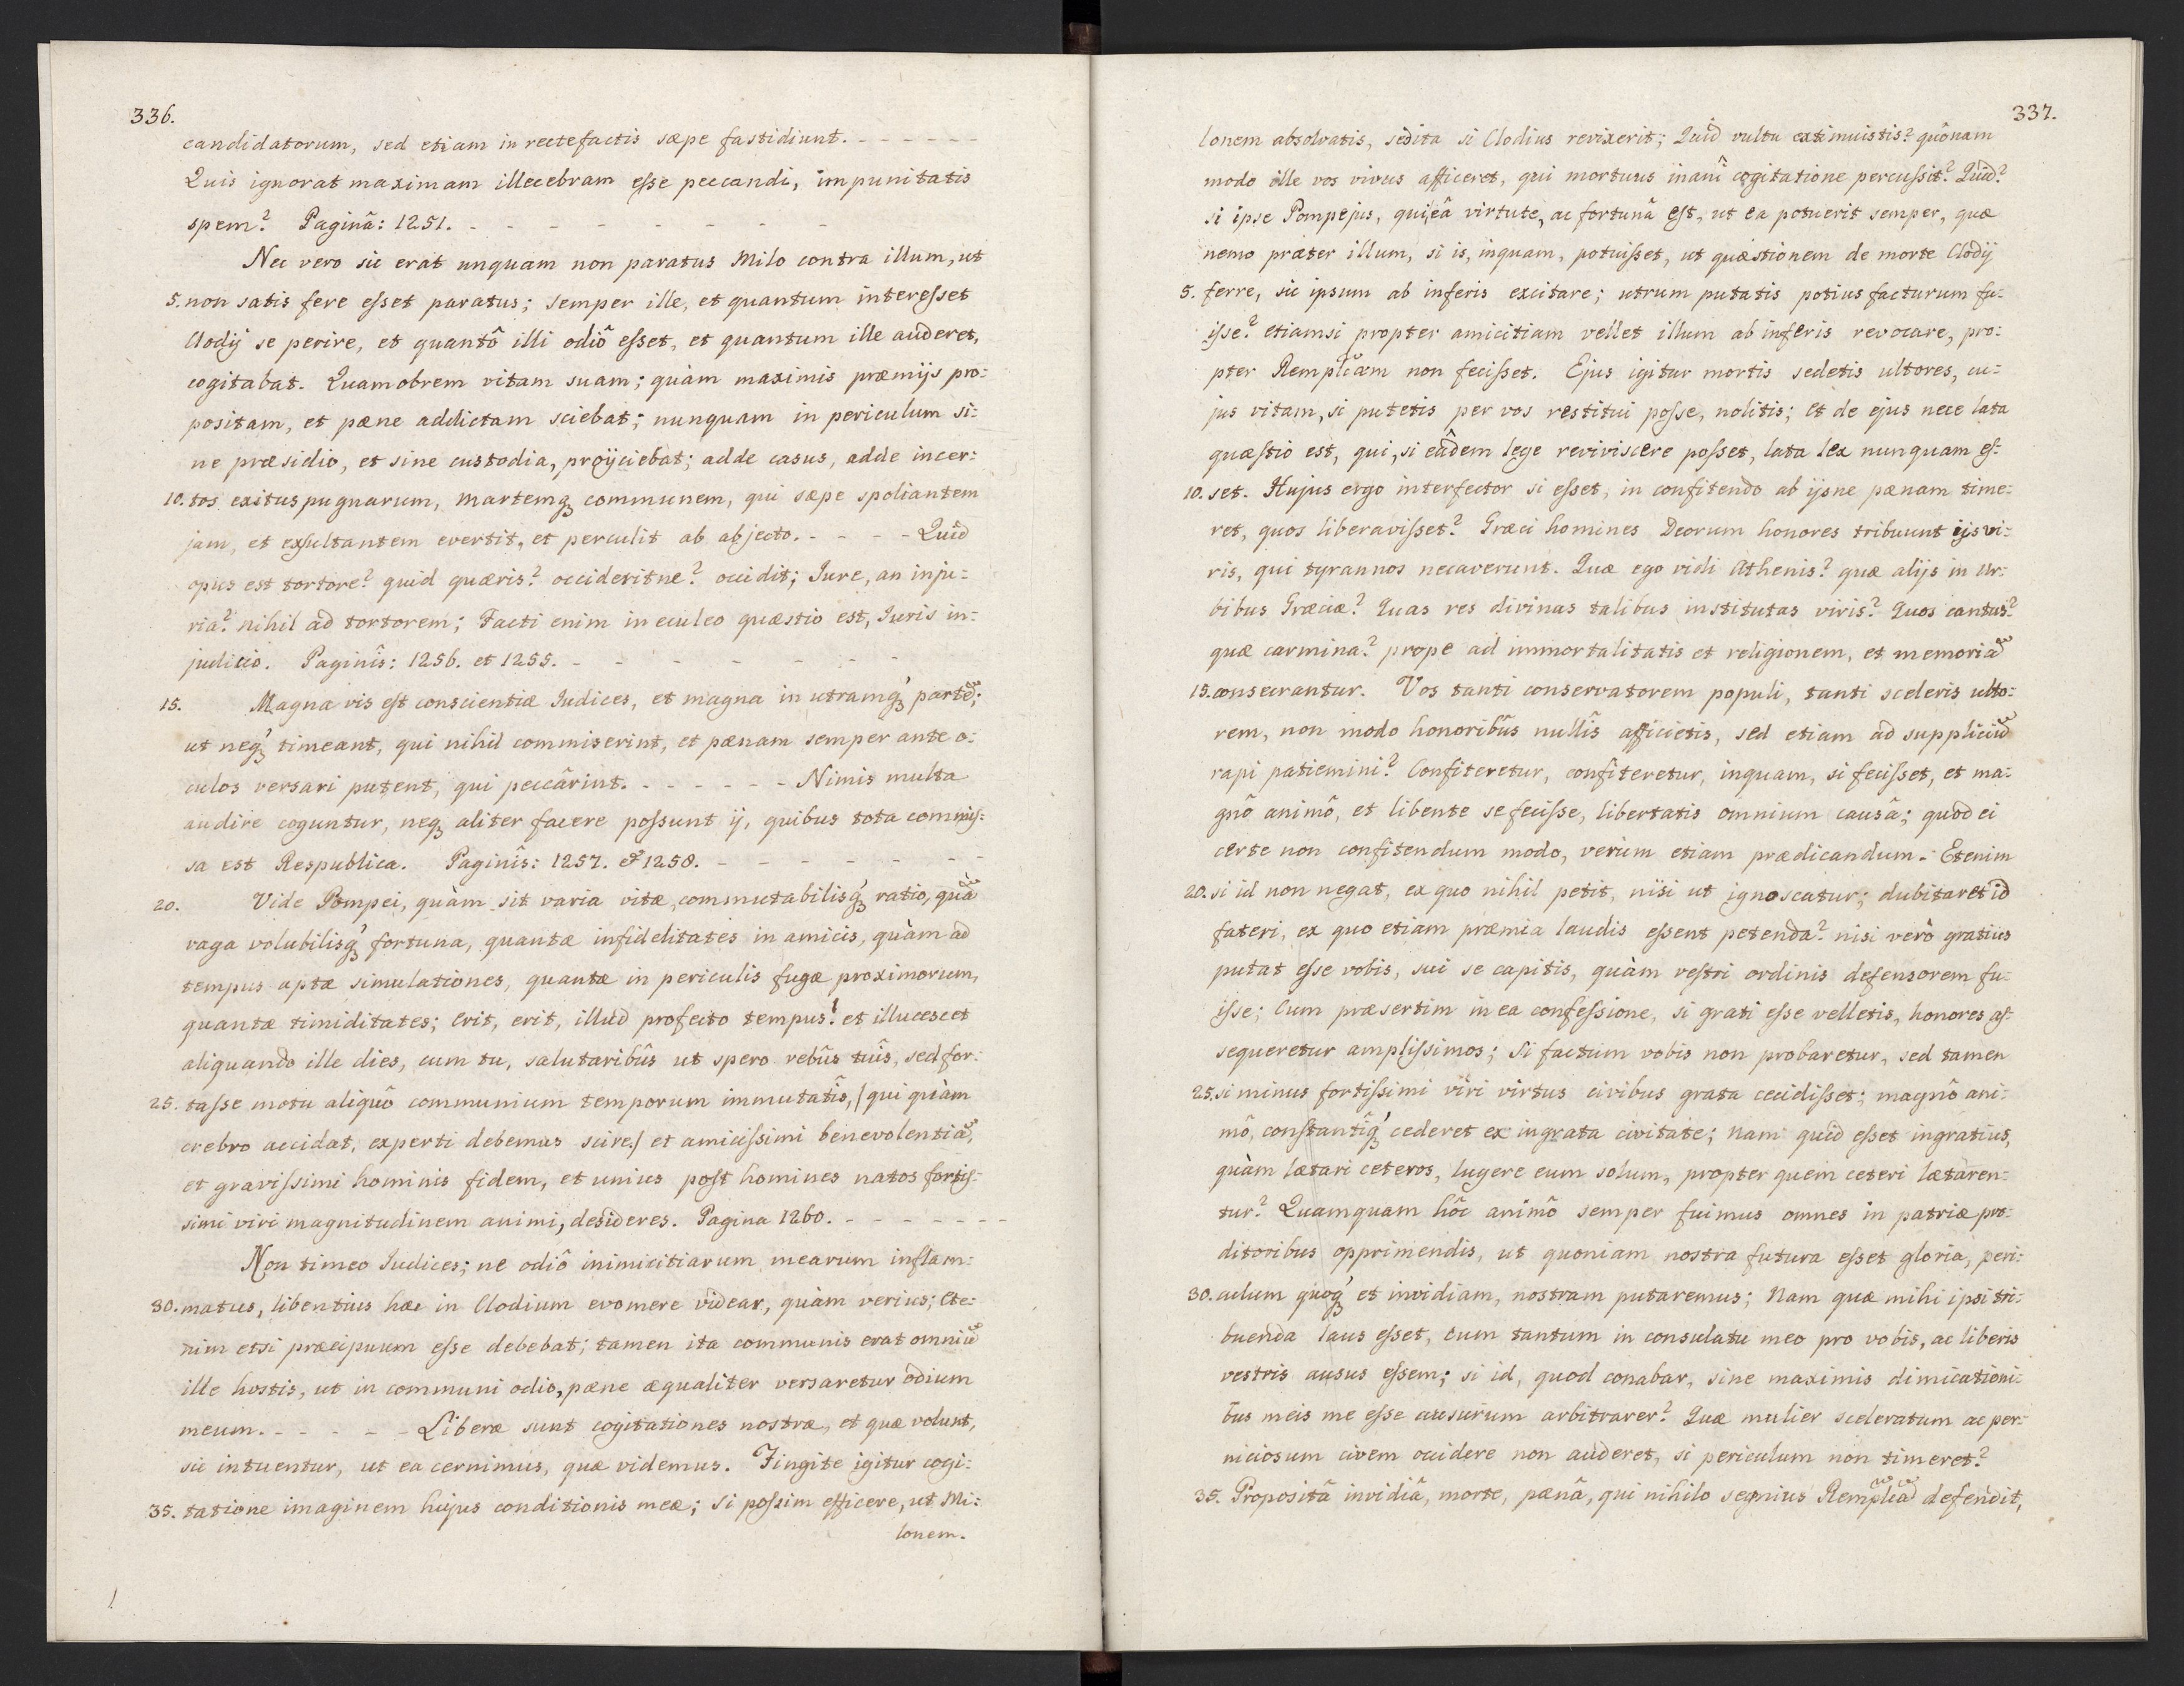 336.
candidatorum, sed etiam in rectefactis sæpe fastidiunt. - - - - - -
Quis ignorat maximam illecebram eſse peccandi, impunitatis
spem? Paginâ: 1251. - - - - - - - -
Nec vero sic erat unquam non paratus Milo contra illum, ut
5. non satis fere eſset paratus; semper ille, et quantum intereſset
Clodÿ se perire, et quantô illi odiô eſset, et quantum ille auderet,
cogitabat. Quamobrem vitam suam; quàm maximis præmijs pro:
positam, et pæne addictam sciebat; nunquam in periculum si:
ne præsidio, et sine custodia, projiciebat; adde casus, adde incer:
10. tos exitus pugnarum, Martemq́ communem, qui sæpe spoliantem
jam, et exſultantem evertit, et perculit ab abjecto. - - - - Quid
opus est tortore? quid quæris? occideritne? occidit; Jure, an inju:
ria? nihil ad tortorem; Facti enim in eculeo quæstio est, Juris in:
judicio. Paginîs: 1256. et 1255. - - - - - - -
15. Magna vis eſt conscientiæ Judices, et magna in utramq́ partẽ;
ut neq́ timeant, qui nihil commiserint, et pænam semper ante o:
culos versari putent, qui peccârint. - - - - - - Nimis multa
audire coguntur, neq́ aliter facere poſsunt ÿ, quibus tota commiſ:
sa est Respublica. Paginîs: 1257. & 1258. - - - - - - -
20. Vide Pompei, quàm sit varia vitæ, commutabilisq́ ratio, quã
vaga volubilisq́ fortuna, quantæ infidelitates in amicis, quàm ad
tempus aptæ simulationes, quantæ in periculis fugæ proximorum,
quantæ timiditates; Erit, erit, illud profecto tempus! et illucescet
aliquando ille dies, cum tu, salutaribûs ut spero rebûs tuîs, sed for:
25. taſse motu aliquô communium temporum immutatîs, /qui quàm
crebro accidat, experti debemus scire/ et amiciſsimi benevolentiã,
et graviſsimi hominis fidem, et unius poſt homines natos fortiſ:
simi viri magnitudinem animi, desideres. Pagina 1260. - - - - - - -
Non timeo Judices; ne odiô inimicitiarum mearum inflam:
30. matus, libentius hæc in Clodium evomere videar, quàm verius; Ete:
nim etsi præcipuum eſse debebat; tamen ita communis erat omniũ
ille hostis, ut in communi odio, pæne æqualiter versaretur odium
meum. - - - - - Liberæ sunt cogitationes nostræ, et quæ volunt,
sic intuentur, ut ea cernimus, quæ videmus. Fingite igitur cogi:
35. tatione imaginem hujus conditionis meæ; si poſsim efficere, ut Mi:
lonem.
337.
lonem absolvatis, sed ita si Clodius revixerit; Quid vultu extimuistis? quônam
modo ille vos vivus afficeret, qui mortuus inanî cogitatione percuſsit? Quid?
si ipse Pompejus, qui eâ virtute, ac fortunâ eſt, ut ea potuerit semper, quæ
nemo præter illum, si is, inquam, potuiſset, ut quæstionem de morte Clodÿ
5. ferre, sic ipsum ab inferis excitare; utrum putatis potius facturum fu:
iſse? etiamsi propter amicitiam vellet illum ab inferis revocare, pro:
pter Remplĩcam non feciſset. Ejus igitur mortis sedetis ultores, cu:
jus vitam, si putetis per vos restitui poſse, nolitis; Et de ejus nece lata
quæſtio est, qui, si eâdem lege reviviscere poſset, lata lex nunquam eſ:
10. set. Hujus ergo interfector si eſset, in confitendo ab ijsne pænam time:
ret, quos liberaviſset? Græci homines Deorum honores tribuunt ijs vi:
ris, qui tyrannos necaverunt. Quæ ego vidi Athenis? quæ alijs in Ur:
bibus Græciæ? Quas res divinas talibus institutas viris? Quos cantus?
quæ carmina? prope ad immortalitatis et religionem, et memoriã
15. consecrantur. Vos tanti conservatorem populi, tanti sceleris ulto:
rem, non modo honoribûs nullîs afficietis, sed etiam ad suppliciũ
rapi patiemini? Confiteretur, confiteretur, inquam, si feciſset, et ma:
gnô animô, et libente se feciſse, libertatis omnium causâ; quod ei
certe non confitendum modo, verùm etiam prædicandum. Etenim
20. si id non negat, ex quo nihil petit, nisi ut ignoscatur; dubitaret id
fateri, ex quo etiam præmia laudis eſsent petenda? nisi verò gratius
putat eſse vobis, sui se capitis, quàm veſtri ordinis defensorem fu:
iſse; Cum præsertim in ea confeſsione, si grati eſse velletis, honores aſ:
sequeretur ampliſsimos; Si factum vobis non probaretur, sed tamen
25. si minus fortiſsimi viri virtus civibus grata cecidiſset; magnô ani:
mô, conſtantîq́ cederet ex ingrata civitate; Nam quid eſset ingratius,
quàm lætari ceteros, lugere eum solum, propter quem ceteri lætaren:
tur? Quamquam hôc animô semper fuimus omnes in patriæ pro:
ditoribus opprimendis, ut quoniam nostra futura eſset gloria, peri:
30. culum quoq́ et invidiam, nostram putaremus; Nam quæ mihi ipsi tri:
buenda laus eſset, cum tantum in consulatu meo pro vobis, ac liberis
vestris ausus eſsem; si id, quod conabar, sine maximis dimicationi:
bus meis me eſse ausurum arbitrarer? Quæ mulier sceleratum ac per:
niciosum civem occidere non auderet, si periculum non timeret?
35. Propositâ invidiâ, morte, pænâ, qui nihilo segnius Remplĩcã defendit,